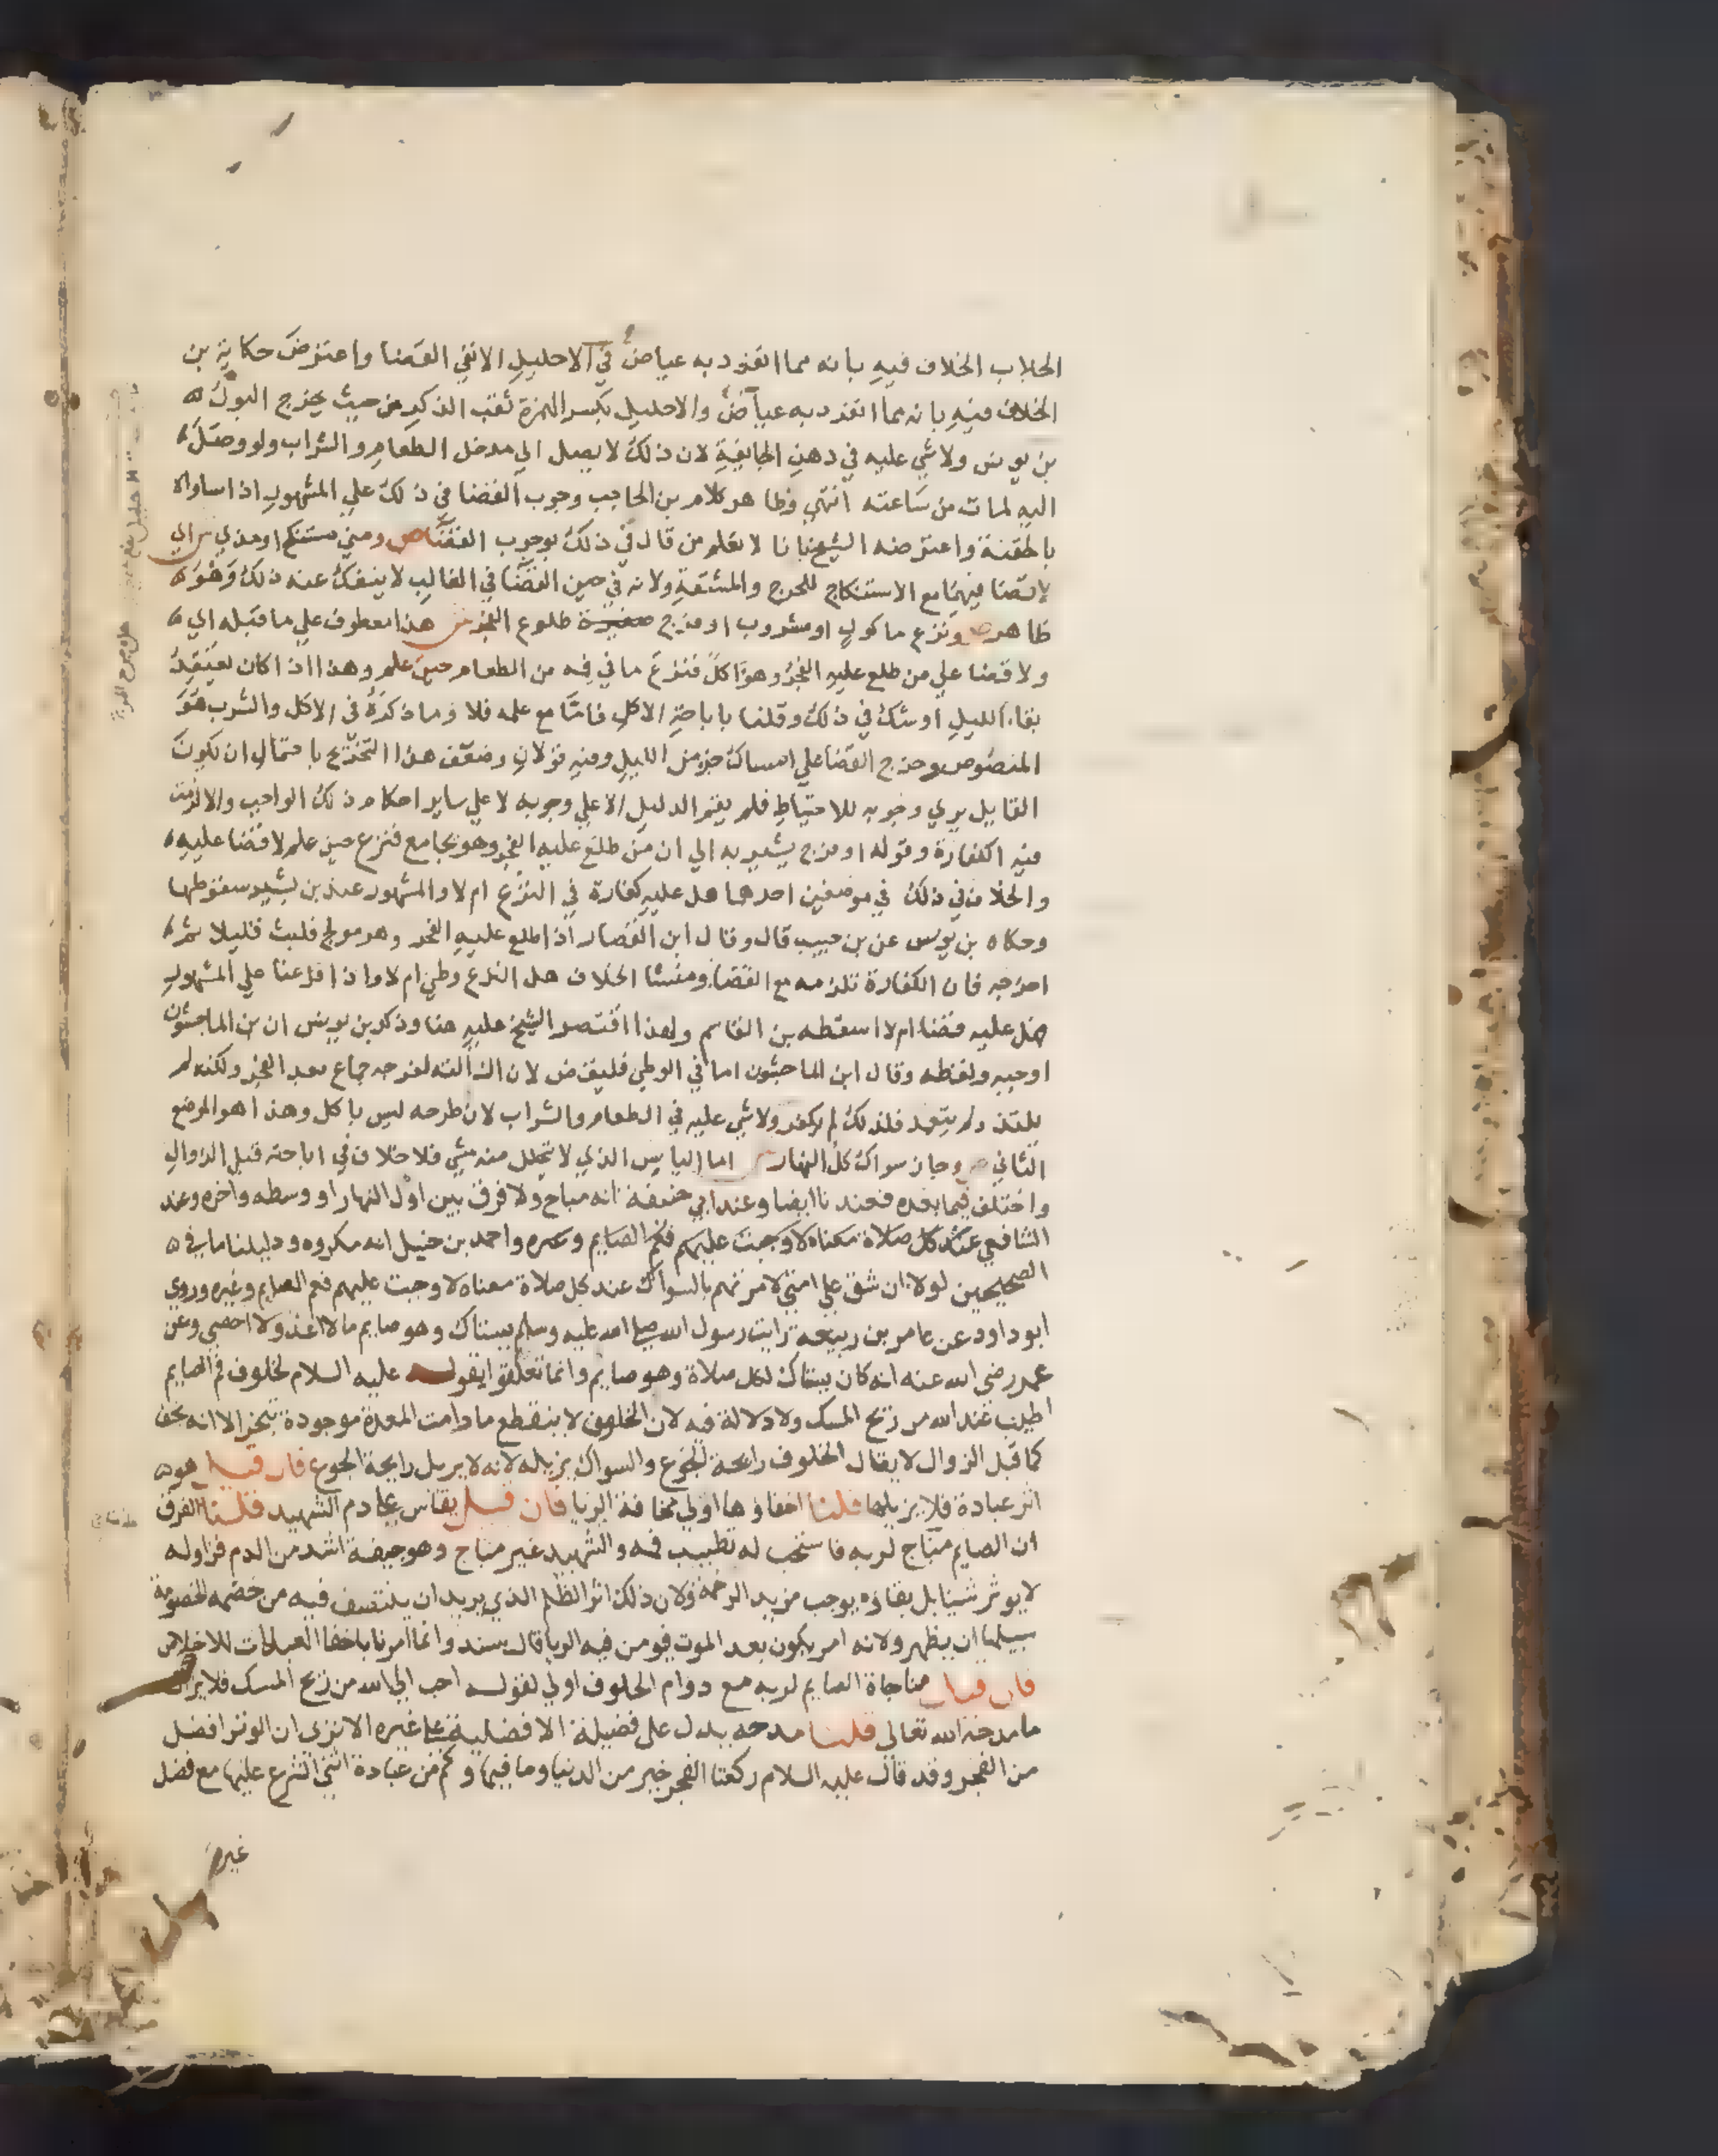 الجلاب الخلاف فيه بانه مما انفرد به عياض في الاحليل الا نفي القضا واعترض حكاية بن
الخلاف فيه بانه مما انفرد به عياض والاحليل بكسر الهمزة ثقب الذكر من حيث يخرج البول ه
بن يونس ولا شي عليه في دهن الجايفة لان ذلك لا يصل الي مدخل الطعام والشراب ولو وصل
اليه لمات من ساعته انتهي وظاهر كلام بن الحاجب وجوب القضا في ذلك علي المشهور اذا ساواه
بالحقنة واعترضه الشيخ بانا لا نعلم من قال في ذلك بوجوب القضا ص ومني مستنكح او مذي ش اي
لا قضا فيهما مع الاستنكاح للحرج والمشقة ولانه في حين القضا في الغالب لا ينفك عنه ذلك وهو
ظاهر ص ونزع ماكول او مشروب او فرج طلوع الفجر ش هذا معطوف علي ما قبله اي
ولا قضا علي من طلع عليه الفجر وهو اكل فنزع ما في فيه من الطعام حين علم وهذا اذا كان يعتقد
بقاء الليل او شك في ذلك وقلنا باباحة الاكل فاما مع علمه فلا وما ذكره في الاكل والشرب هو
المنصوص وخرج القضا علي امساك جزء من الليل وفيه قولان وضعف هذا التخريج باحتمال ان يكون
القايل يري وجوبه للاحتياط فلم يقم الدليل الا علي وجوبه لا علي ساير احكام ذلك الواجب والا لزمت
فيه الكفارة وقوله او فرج يشير به الي ان من طلع عليه الفجر وهو يجامع فنزع حين علم لا قضا عليه
والخلاف في ذلك في موضعين احدهما هل عليه كفارة في النزع ام لا والمشهور عند بن بشير سقوطها
وحكاه بن يونس عن بن حبيب قال وقال ابن القصار اذا طلع عليه الفجر وهو مولج فلبث قليلا ثم
اخرجه فان الكفارة تلزمه مع القضا ومنشا الخلاف هل النزع وطي ام لا واذا فرعنا علي المشهور
هل عليه قضا ام لا اسقطه بن القاسم ولهذا اقتصر الشيخ عليه هنا وذكر بن يونس ان بن الماجشون
اوجبه ولفظه وقال ابن الماجشون اما في الوطي فليقض لان ازالته لفرجه جماع بعد الفجر ولكنه لم
يلتذ ولم يتعمد فلذلك لم يكفر ولا شي عليه في الطعام والشراب لان طرحه ليس باكل وهذا هو الموضع
الثاني ص وجاز سواك كل النهار ش اما اليابس الذي لا يتحلل منه شي فلا خلاف في اباحته قبل الزوال
واختلف فيما بعده فعندنا ايضا وعند ابي حنيفة انه مباح ولا فرق بين اول النهار او وسطه واخره وعند
الشافعي عند كل صلاة معناه لاوجبت عليهم فعم الصايم وغيره واحمد بن حنبل انه مكروه ودليلنا ما في ه
الصحيحين لولا ان شق علي امتي لامرتهم بالسواك عند كل صلاة معناه لاوجبت عليهم فعم الصايم وغيره وروي
ابو داود عن عامر بن ربيعة رايت رسول الله صلي الله عليه وسلم يستاك وهو صايم مالا اعد ولا احصي وعن
عمر رضي الله عنه انه كان يستاك لكل صلاة وهو صايم وانما تعلقوا بقوله عليه السلام لخلوف فم الصايم
اطيب عند الله من ريح المسك ولا دلالة فيه لان الخلوف لا ينقطع ما دامت المعدة موجودة تبخر الا انه يخف
كما قبل الزوال لا يقال الخلوف رايحة الجوع والسواك يزيله لانه لا يزيل رايحة الجوع فان قيل هو ه
اثر عبادة فلا يزيلها قلنا اخفاوها اولي مخافة الريا فان قيل يقاس علي دم الشهيد قلنا الفرق
ان الصايم مناج لربه فاستحب له تطييب فمه والشهيد غير مناج وهو جيفة اشد من الدم فزواله
لا يوثر شيا بل بقاوه يوجب مزيد الرحمة ولان ذلك اثر الظلم الذي يريد ان ينتصف فيه من خصمه الخصومة
سبيلها ان يظهر ولانه امر يكون بعد الموت فومن فيه الريا قال سند وانما امرنا باخفا العبادات للاخلاص
فان قيل مناجاة الصايم لربه مع دوام الخلوف اولي لقوله احب الي الله من ريح المسك فلا يزال
ما مدحه الله تعالي قلنا مدحه يدل علي فضيلة لا افضلية علي غيره الا تري ان الوتر افضل
من الفجر وقد قال عليه السلام ركعتا الفجر خير من الدنيا وما فيها وكم من عبادة اثني الشرع عليها مع فضل
غيرها